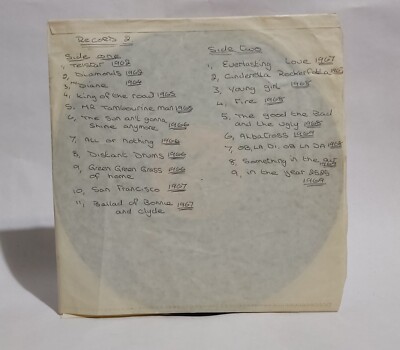 Record 2
Side one
1, Telstar 1962
2, Diamonds 1963
3, Diane 1964
4, King of the road 1965
5, Mr Tambourine man 1965
6, The Sun ain't gonna
shine anymore 1966
7, All or nothing 1966
8, Distant Drums 1966
9, Green Green Grass 1966
of home
10, San Francisco 1967
11, Ballad of Bonnie 1967
and Clyde
Side two
1, Everlasting Love 1967
2, Cinderella Rockerfella 1968
3, Young girl 1968
4, Fire 1968
5, The good the Bad
and the ugly 1968
6, Albatross 1968
7, OB LA DI, OB LA DA 1968
8, Something in the air 1969
9, in the year 2525
1969